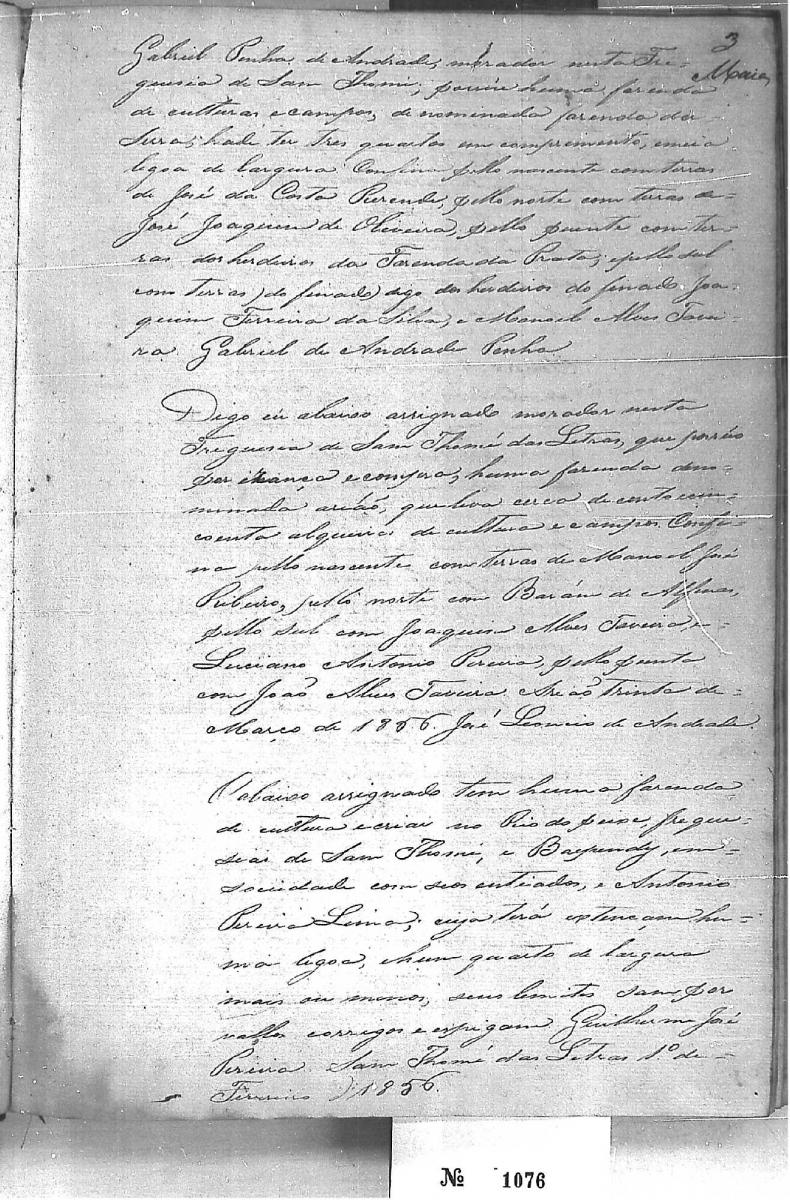 3
Maia
Gabriel Penha de Andrade, morador nesta Fre-
guesia de Sam Thomé, possue huma fazenda
de culturas e campos, denominada fazenda da
Serra; hade ter tres quartos em comprimento, e meia
legoa de largura Confina pello nascente com terras
de José da Costa Rezende, pello norte com teras de
José Joaquim de Oliveira, pello puente com ter-
ras dos herdeiros da Fazenda da Prata; e pello sul
com terras do finado digo dos herdeiros do finado Joa-
quim Ferreira da Silva, e Manoel Alves Tavei-
ra. Gabriel de Andrade Penha
Digo eu abaixo assignado morador nesta
Freguesia de Sam Thomé das Letras, que possuo
por erança e compra, huma fazenda deno-
minada arião, que leva cerca de cento e cin-
coenta alqueires de cultura e campos. Confi-
na pello nascente com terras de Manoel José
Ribeiro, pello norte com Barán de Alfenas,
pello sul com Joaquim Alves Taveira, e
Luciano Antonio Pereira, pello puente
com João Alves Taveira Arião trinta de
Março de 1856 José Leoncio de Andrade.
O abaixo assignado tem huma fazenda
de cultura e criar no Rio do peixe, fregue-
seas de Sam Thomé, e Baependy, em
sociedade com seos entiados, e Antonio
Pereira Lima; cuja terá extençam hu-
ma legoa, e hum quarto de largura
mais ou menos, seus lemites sam por
vallos corrigos e espigam Guilherme José
Pereira. Sam Thomé das Letras 1º de
Fevreiro 1856.
Nº 1076